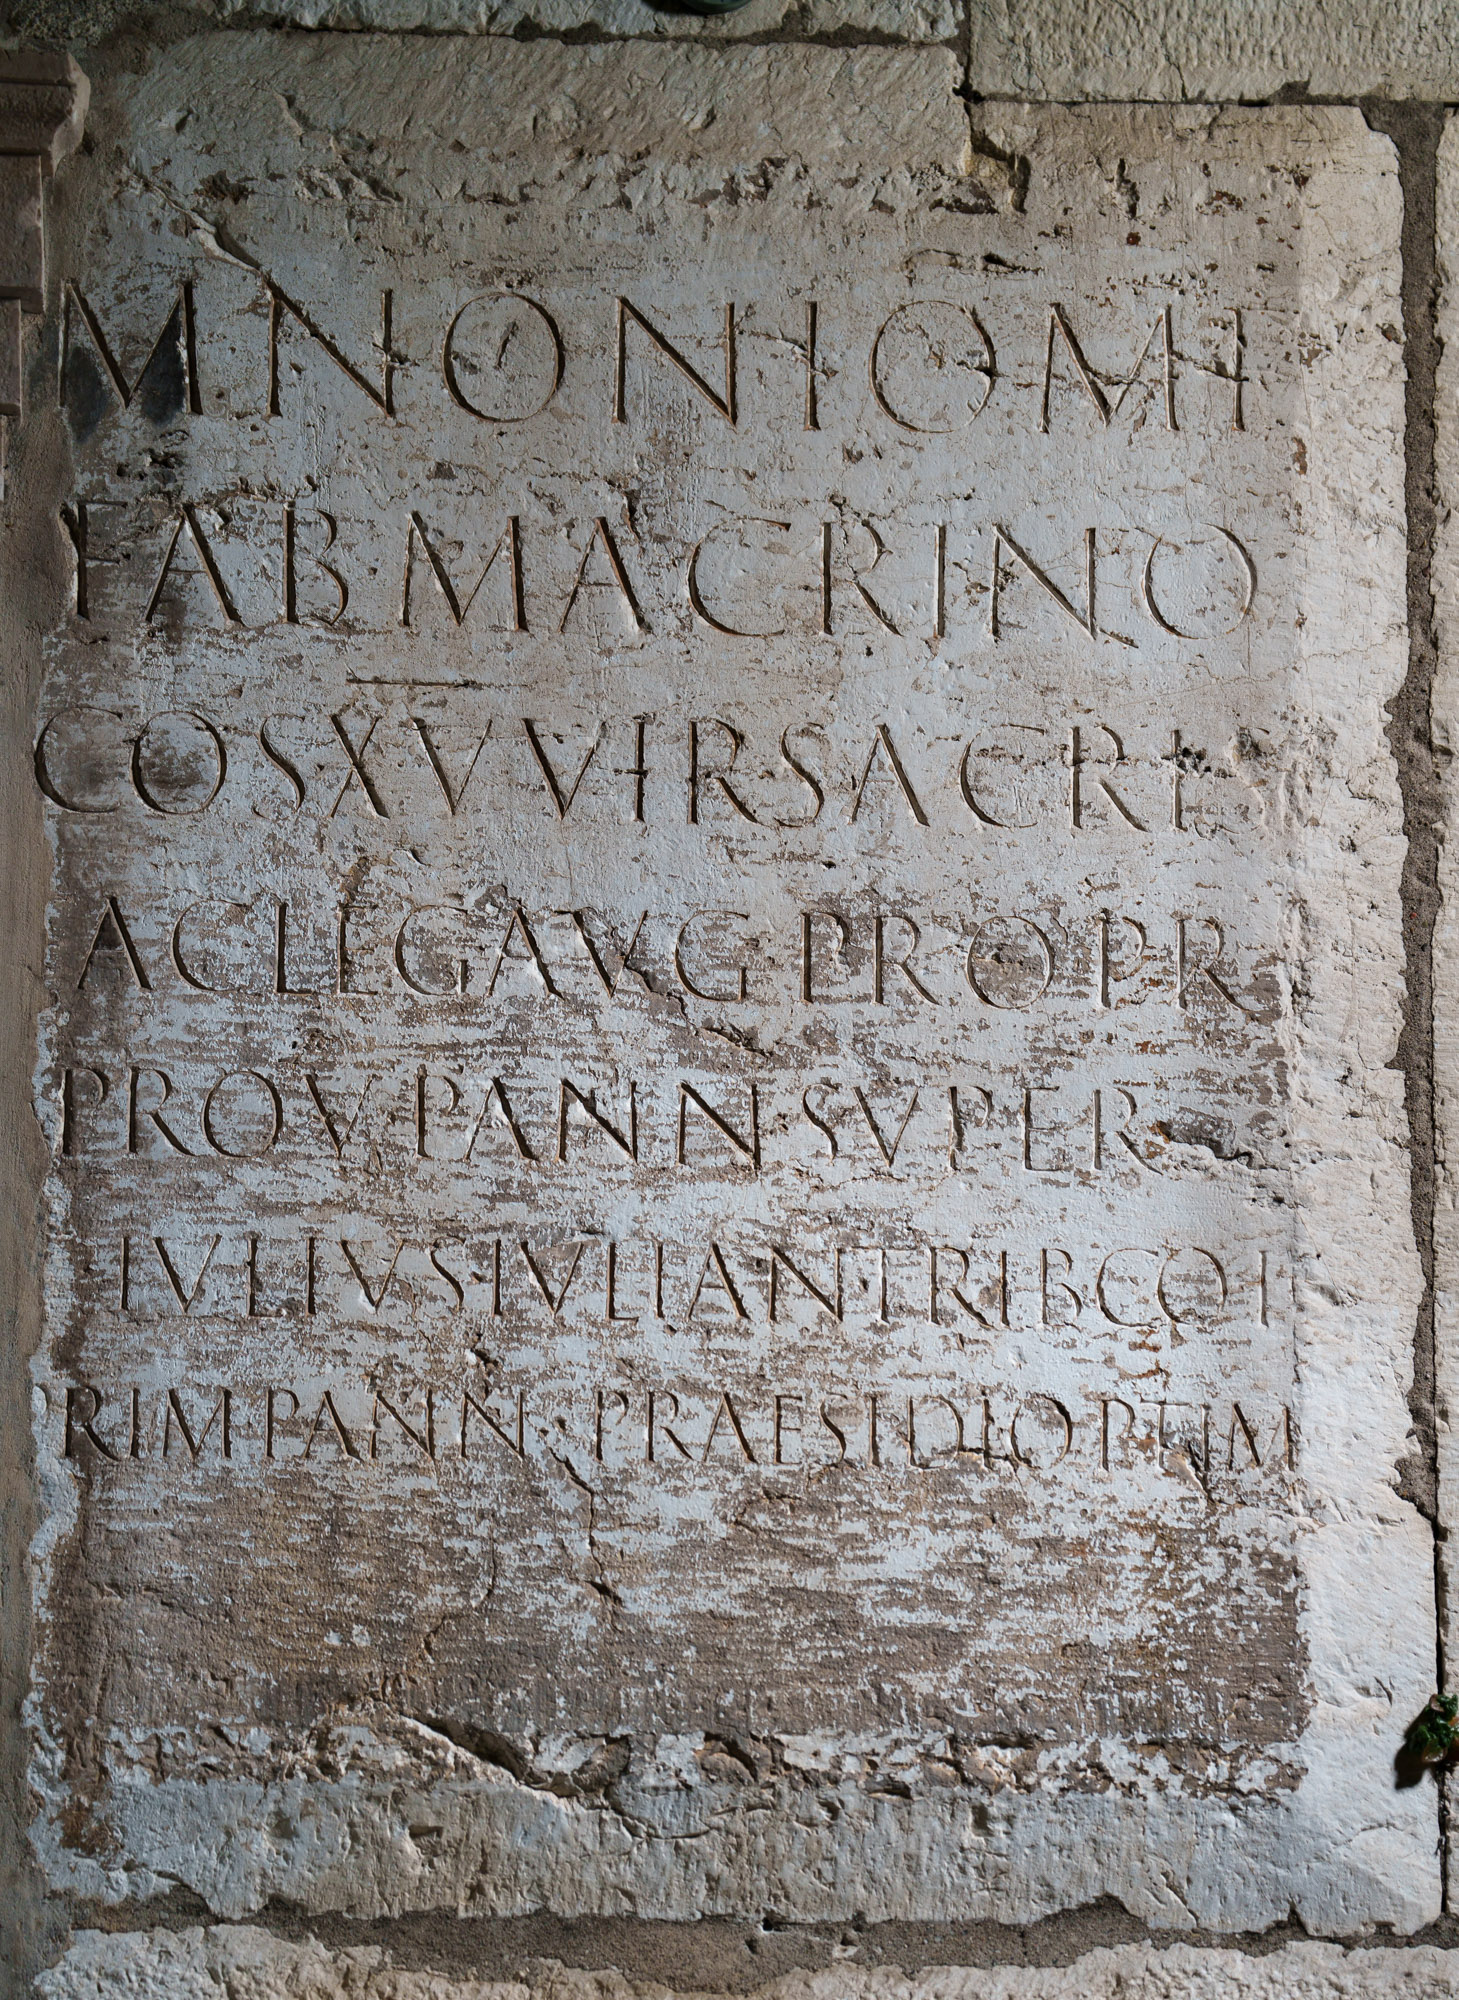 M NONIO M F
FAB MACRINO
COS XV VIR SACRIS
AC LEG AVG PR PR
PROV PANN SVPER
IVLIVS IVLIAN TRIB COH
PRIM PANN PRAESIDI OPTIM